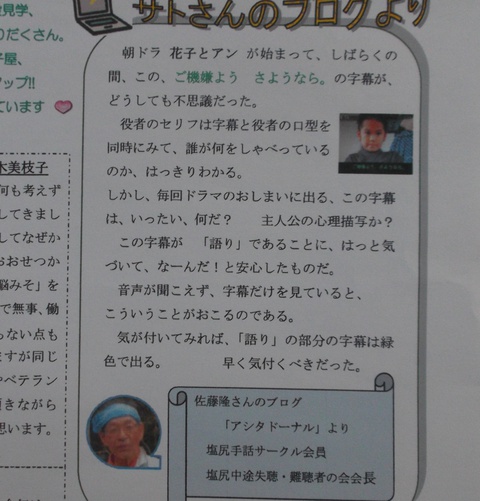 見学、
りだくさん。
子屋、
アップ!!
ています
木美枝子
何も考えず
してきまし
してなぜか
おおせつか
脳みそ」を
で無事、働
らない点も
ますが同じ
やベテラン
頂きながら
思います。
サトさんのブログより
朝ドラ 花子とアン が始まって、しばらくの
間、この、ご機嫌よう さようなら。の字幕が、
どうしても不思議だった。
役者のセリフは字幕と役者の口型を
同時にみて、誰が何をしゃべっている
のか、はっきりわかる。
しかし、毎回ドラマのおしまいに出る、この字幕
は、いったい、何だ? 主人公の心理描写か?
この字幕が 「語り」であることに、はっと気
づいて、なーんだ!と安心したものだ。
音声が聞こえず、字幕だけを見ていると、
こういうことがおこるのである。
気が付いてみれば、「語り」の部分の字幕は緑
色で出る。 早く気付くべきだった。
佐藤隆さんのブログ
「アシタドーナル」より
塩尻手話サークル会員
塩尻中途失聴・難聴者の会会長